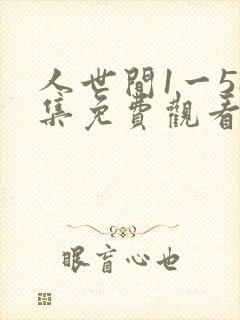 人世間1一5
集免費觀看
眼盲心也